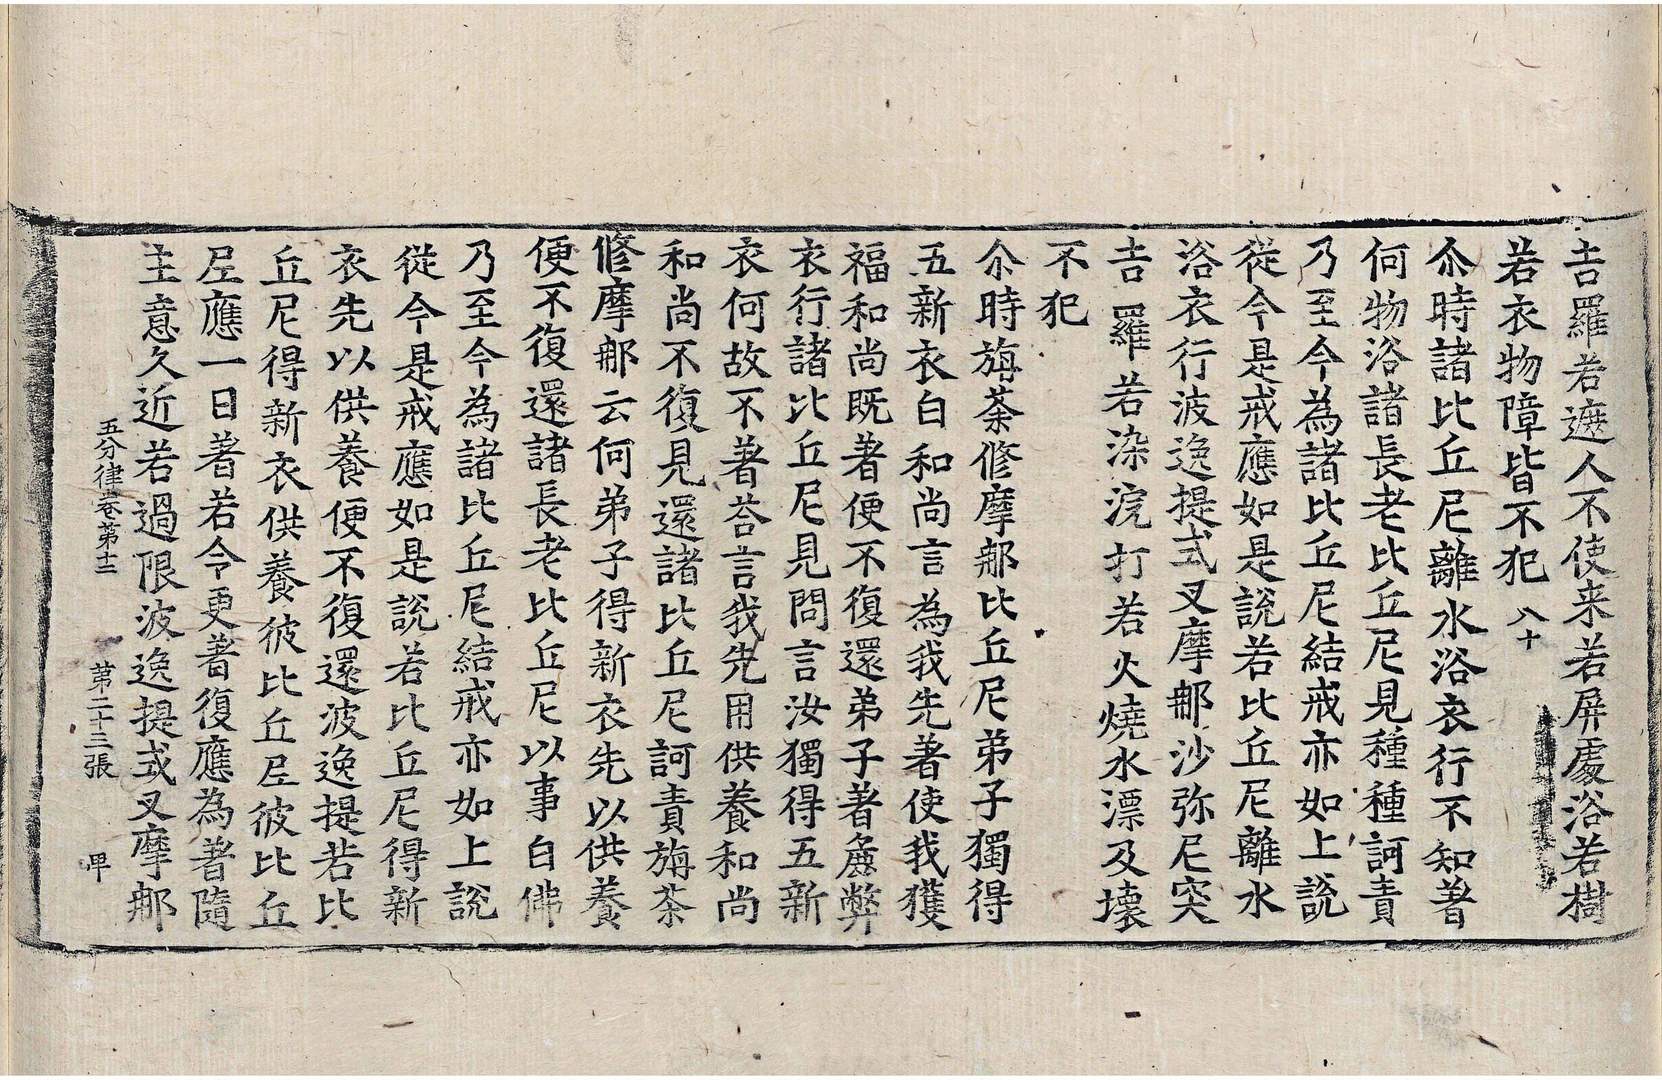 吉羅若遮人不使来若屏處浴若樹
若衣物障皆不犯 八十
尒時諸比丘尼離水浴衣行不知著
何物浴諸長老比丘尼見種種訶責
乃至今為諸比丘尼結戒亦如上說
從今是戒應如是說若比丘尼離水
浴衣行波逸提式叉摩那沙弥尼突
吉羅若染浣打若火燒水漂及壞
不犯
尒時旃荼修摩那比丘尼弟子獨得
五新衣白和尚言為我先著使我獲
福和尚既著便不復還弟子著麁弊
衣行諸比丘尼見問言汝獨得五新
衣何故不著荅言我先用供養和尚
和尚不復見還諸比丘尼訶責旃荼
修摩那云何弟子得新衣先以供養
便不復還諸長老比丘尼以事白佛
乃至今為諸比丘尼結戒亦如上說
從今是戒應如是說若比丘尼得新
衣先以供養便不復還波逸提若比
丘尼得新衣供養彼比丘尼彼比丘
尼應一日著若令更著復應為著隨
主意久近若過限波逸提式叉摩那
五分律卷第十二 第二十三張